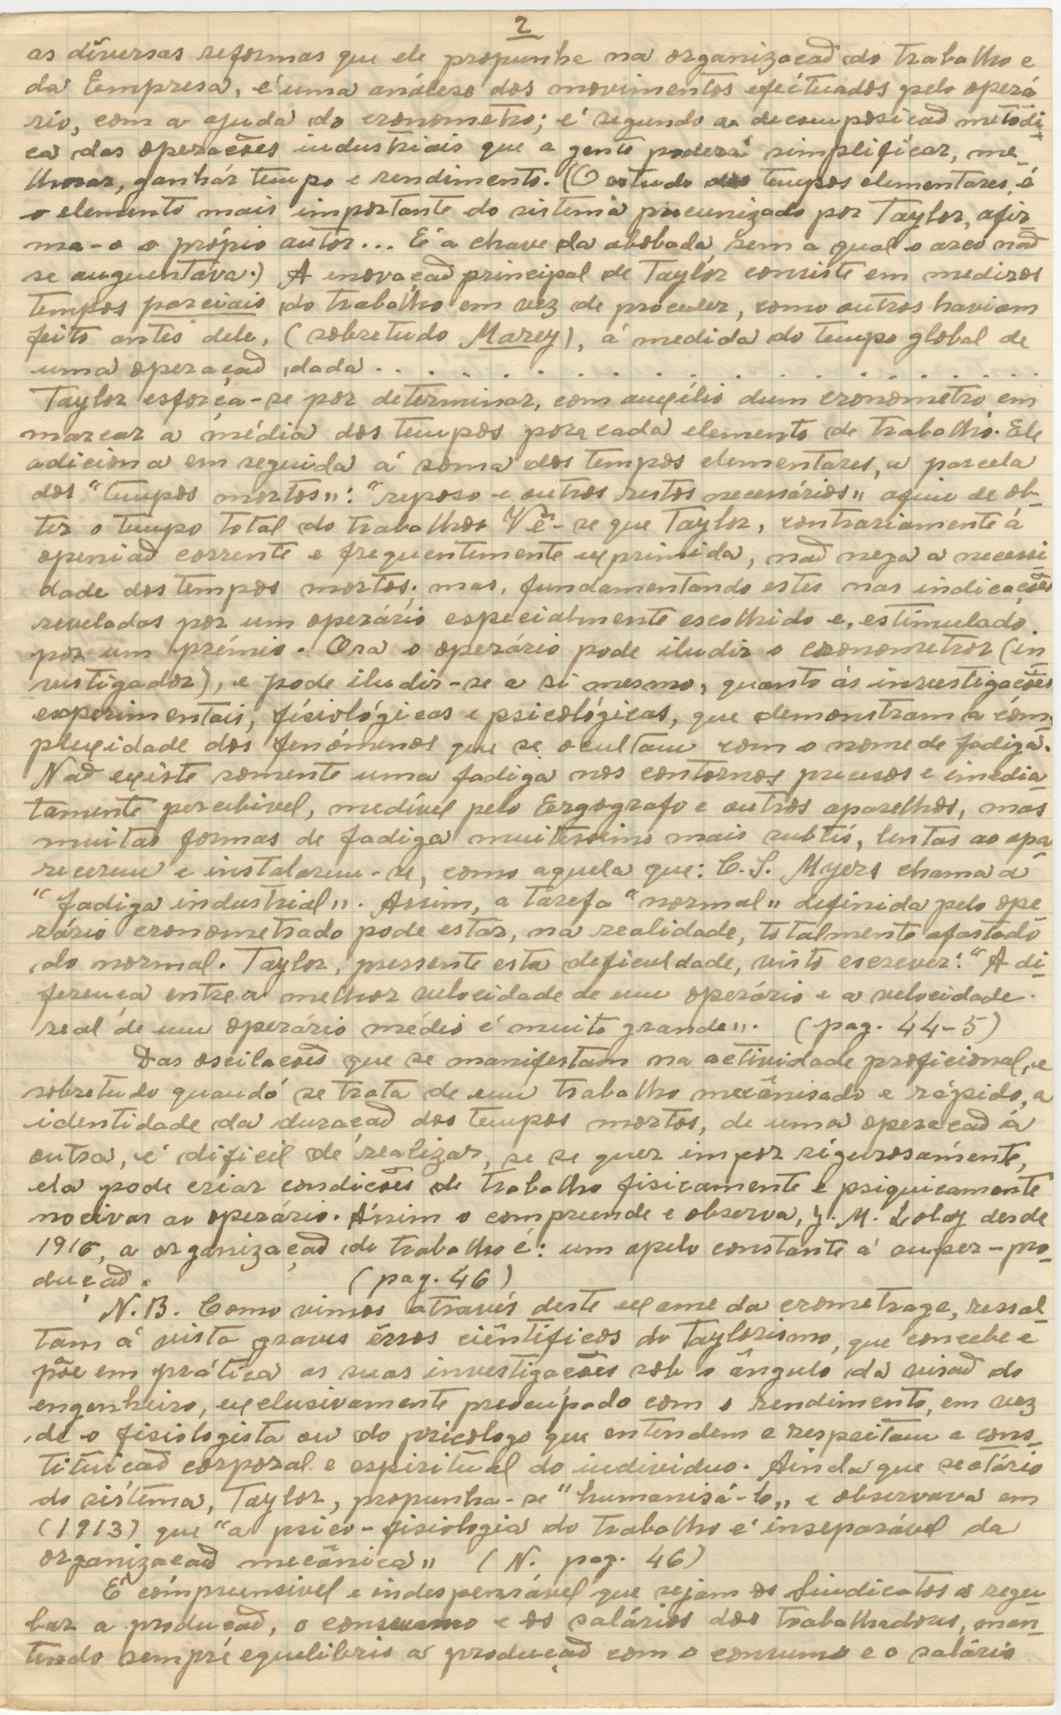 2
as diversas reformas que ele propunhe na organizacaõ do trabalho e
da Empresa, é uma análese dos movimentos eféituados pelo operá
rio, com a ajuda do cronometro; é segundo a decomposicaõ metódi-
ca das operacões industriais que a gente poderá simplificar, me-
lhorar, ganhár tempo e rendimento. (O estudo dos tempos elementares é
o elemento mais importante do sistema precunizado por Taylor, afir
ma-o o próprio autor... É a chave da abobada, sem a qual o arco naõ
se auguentava.) A inovaçaõ principal de Taylor consiste em medir os
tempos parciais do trabalho em vez de proceder, como outros haviam
feito antes dele, (sobretudo Marey), á medida do tempo global de
uma operaçaõ dada . . . . . . . . . . . . . . . . . .
Taylor esforça-se por determinar, com auxílio dum cronometro em
marcar a média dos tempos para cada elemento de trabalho. Ele
adiciona em seguida á soma dos tempos elementares, a parcela
dos "tempos mortos": "reposo e outros restos necessários" afim de ob-
ter o tempo total do trabalho. Vê-se que Taylor, contrariamente á
openiaõ corrente e frequentemente exprimida, naõ nega a necessi
dade dos tempos mortos; mas, fundamentando estes nas indicações
reveladas por um operário especialmente escolhido e, estimulado
por um prémio. Ora o operário pode iludir o cronometror (in
vestigador), e pode iludir-se a si mesmo, quanto ás investigacões
experimentais, fisiológicas e psicológicas, que demonstram a com
plexidade dos fenómenos que se ocultam com o nome de fadiga.
Naõ existe somente uma fadiga nos contornos precisos e imédia-
tamente percebivel, medível pelo Ergografo e outros aparelhos, mas
muitas formas de fadiga muitissimo mais subtis, lentas ao apa
recerem e instalarem-se, como aquela que: C. S. Myers chama a
"fadiga industrial". Assim, a tarefa "normal" definida pelo ope
rário cronometrado pode estar, na realidade, totalmente afastado
do normal. Taylor, pressente esta deficuldade, visto escrever: "A di-
ferença entre a melhor velocidade de um operário e a velocidade
real de um operário médio é muito grande". (pag. 44-5)
Das oscilacoes que se manifestam na actividade proficional, e
sobretudo quando se trata de um trabalho mecânisado e rápido, a
identidade da duraçaõ dos tempos mortos, de uma operacaõ á
outra, é dificil de realizar, se se quer impor rigurosamente,
ela pode criar condicões de trabalho fisicamente e psiquicamente
nocivas ao operário. Assim o compreende e observa, J. M. Lahy desde
1916, a organizaçaõ do trabalho é: um apelo constante á super-pro-
duçaõ. (pag. 46)
N.B. Como vimos através deste exame da crometrage, ressal-
tam á vista graves êrros ciêntificos do Taylorismo, que concebe e
põe em prática as suas investigacões sob o ângulo da visaõ do
engenheiro, exclusivamente preocupado com o rendimento, em vez
de o fisiologista ou do psicologo que entendem e respeitam a cons-
tituicaõ corporal e espiritual do individuo. Ainda que seotário
do sistema, Taylor, propunha-se "humanisá-lo" e observava em
(1913) que "a psico-fisiologia do trabalho é inseparável da
organizacaõ mecânica" (N. pag. 46)
É compreensivel e indespensável que sejam os Sindicatos a regu-
lar a produçaõ, o consumo e os salários dos trabalhadores, man-
tendo sempre equelibrio a produçaõ com o consumo e o salário